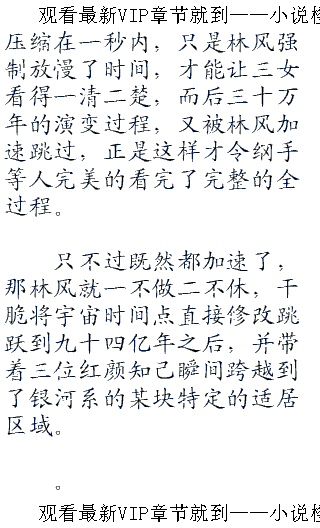 观看最新VIP章节就到——小说
压缩在一秒内，只是林风强
制放慢了时间，才能让三女
看得一清二楚，而后三十万
年的演变过程，又被林风加
速跳过，正是这样才令纲手
等人完美的看完了完整的全
过程。
只不过既然都加速了，
那林风就一不做二不休，干
脆将宇宙时间点直接修改跳
跃到九十四亿年之后，并带
着三位红颜知己瞬间跨越到
了银河系的某块特定的适居
区域。
。
观看最新VIP章节就到——小说